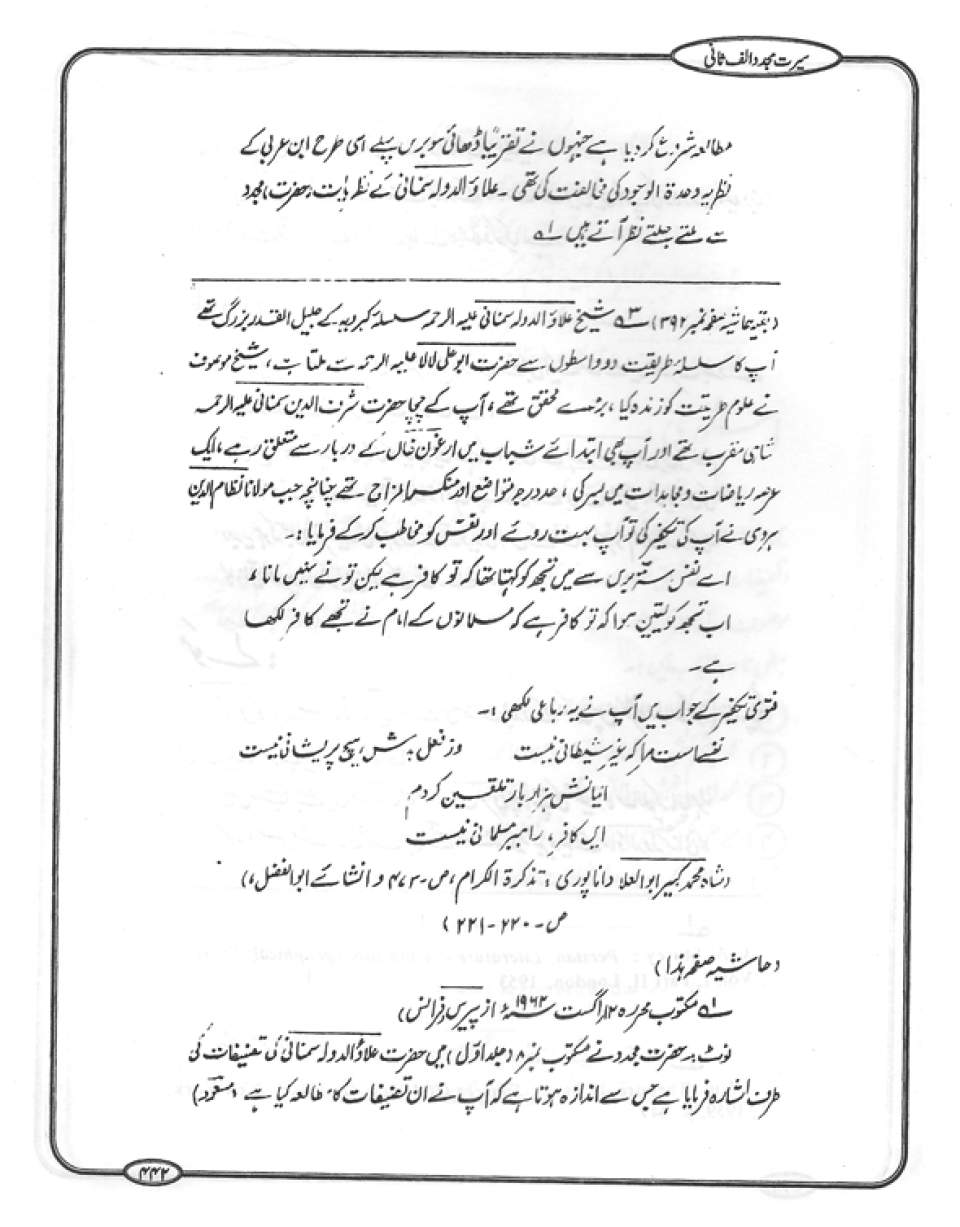 سیرت مجدد الف ثانی
مطالعہ شروع کر دیا ہے جنہوں نے تقریباً ڈھائی سو برس پہلے اسی طرح ابن عربی کے
نظریہ وحدۃ الوجود کی مخالفت کی تھی۔ علاؤ الدولہ سمنانی کے نظریات، حضرت مجدد
سے ملتے جلتے نظر آتے ہیں ۱؎
(بقیہ حاشیہ صفحہ نمبر ۳۹۲) ۳؎ شیخ علاؤ الدولہ سمنانی علیہ الرحمہ سلسلۂ کبرویہ کے جلیل القدر بزرگ تھے
آپ کا سلسلۂ طریقت دو واسطوں سے حضرت ابو علی لالا علیہ الرحمہ سے ملتا ہے، شیخ موصوف
نے علوم طریقت کو زندہ کیا، بڑے محقق تھے، آپ کے چچا حضرت شرف الدین سمنانی علیہ الرحمہ
شاہی مقرب تھے اور آپ بھی ابتدائے شباب میں ارغون خاں کے دربار سے متعلق رہے، ایک
عرصہ ریاضات و مجاہدات میں بسر کی، حد درجہ متواضع اور منکسر المزاج تھے چنانچہ جب مولانا نظام الدین
ہروی نے آپ کی تکفیر کی تو آپ بہت روئے اور نفس کو مخاطب کر کے فرمایا:۔
اے نفس ستر برس سے میں تجھ کو کہتا تھا کہ تو کافر ہے لیکن تو نے نہیں مانا،
اب تجھ کو یقین ہوا کہ تو کافر ہے کہ مسلمانوں کے امام نے تجھے کافر لکھا
ہے۔
فتویٰ تکفیر کے جواب میں آپ نے یہ رباعی لکھی:۔
نفسے است مرا کہ غیر شیطانی نیست وز فعل بدش ہیچ پریشانی نیست
ایمانش ہزار بار تلقین کردم
ایں کافر را ہم سر مسلمانی نیست
(شاہ محمد کبیر ابو العلا دانا پوری: تذکرۃ الکرام، ص۔۴۷۳ و انشائے ابوالفضل،)
ص۔۲۲۰-۲۲۱)
(حاشیہ صفحہ ہذا)
۱؎ مکتوب محررہ ۱۲ اگست ۱۹۶۲ء از پیرس (فرانس)
نوٹ:۔ حضرت مجدد نے مکتوب نمبر ۸ (جلد اوّل) میں حضرت علاؤ الدولہ سمنانی کی تصنیفات کی
طرف اشارہ فرمایا ہے جس سے اندازہ ہوتا ہے کہ آپ نے ان تصنیفات کا مطالعہ کیا ہے (مسعود)
۴۴۲